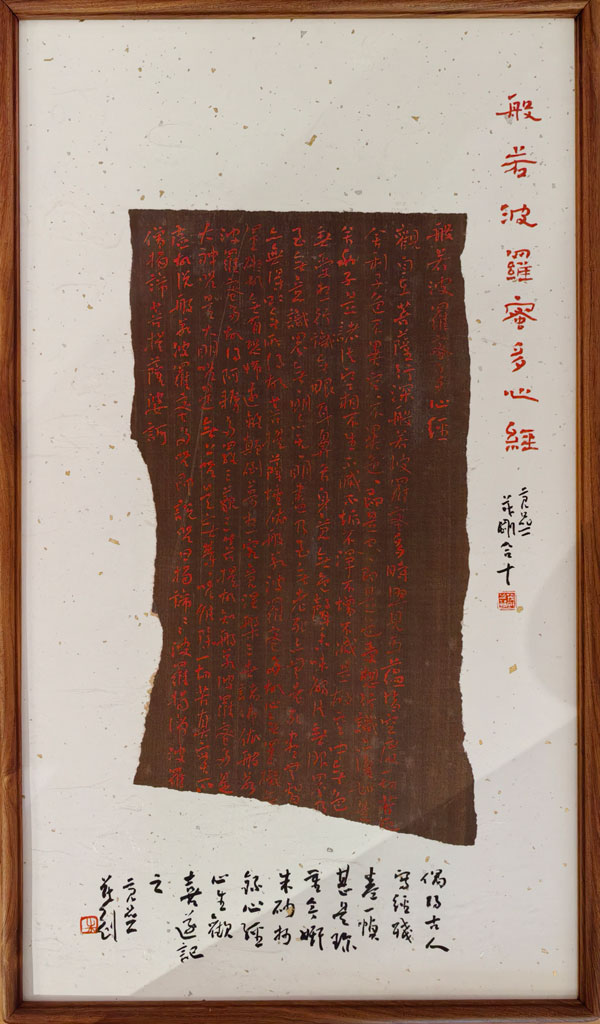 般若波羅蜜多心經
合十
般若波羅蜜多心經
觀自在菩薩行深般若波羅蜜多時照見五蘊皆空
舍利子色不異空空不異色色即是空空即是色受想行識
是諸法空相不生不滅不垢不淨不增不減是故空中無色
無受想行識無眼耳鼻舌身意無色聲香味觸法無眼界乃
至無意識界無無明亦無無明盡乃至無老死亦無老死盡
無無得以無所得故菩提薩埵依般若波羅蜜多故心無罣礙
罣礙故無有恐怖遠離顛倒夢想究竟涅槃三世諸佛依般若
波羅蜜多故得阿耨多羅三藐三菩提故知般若波羅蜜多是
大神咒是大明咒是無上咒是無等等咒能除一切苦真實不
虛故說般若波羅蜜多咒即說咒曰揭諦揭諦波羅揭諦波羅
僧揭諦菩提薩婆訶
偶得古人
寫經殘
卷一幀
甚是珍
重合
朱砂抄
錄心經
心生歡
喜遂記
之